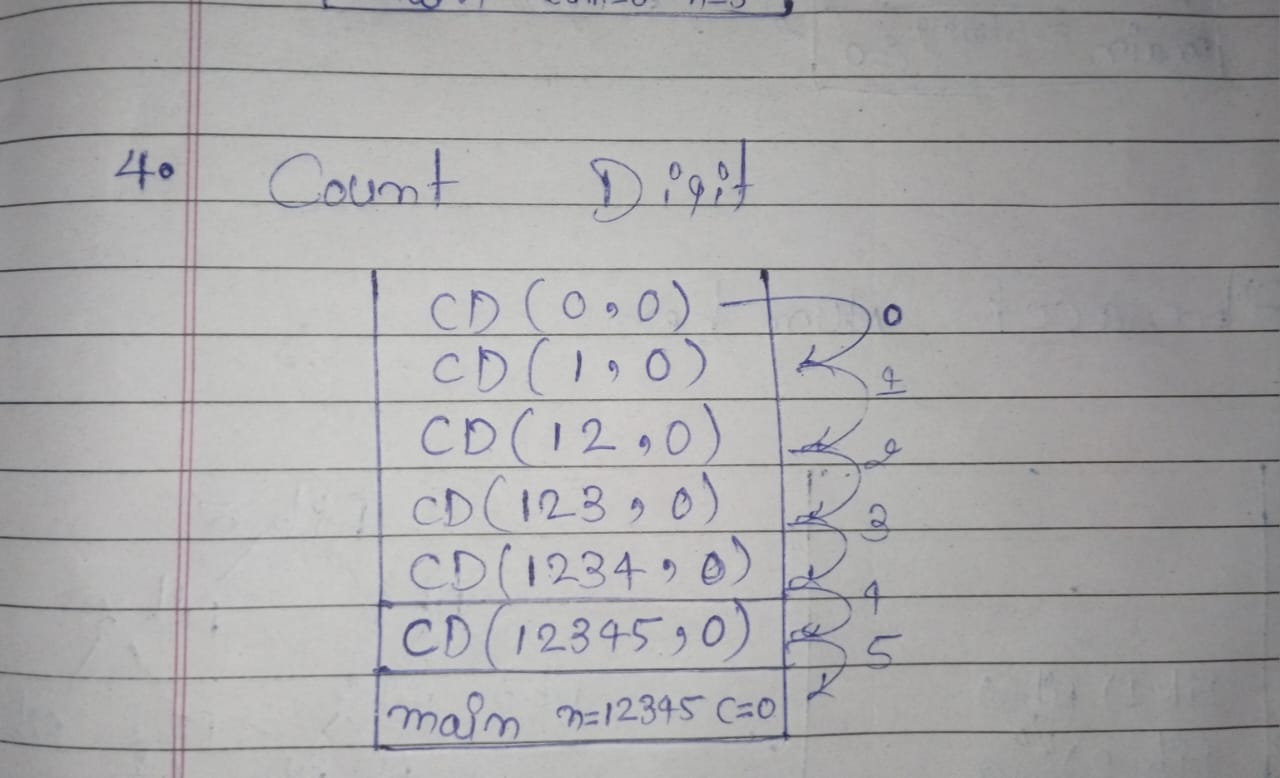 4. Count Digit
CD(0,0) 0
CD(1,0) 1
CD(12,0) 2
CD(123,0) 3
CD(1234,0) 4
CD(12345,0) 5
main n=12345 C=0